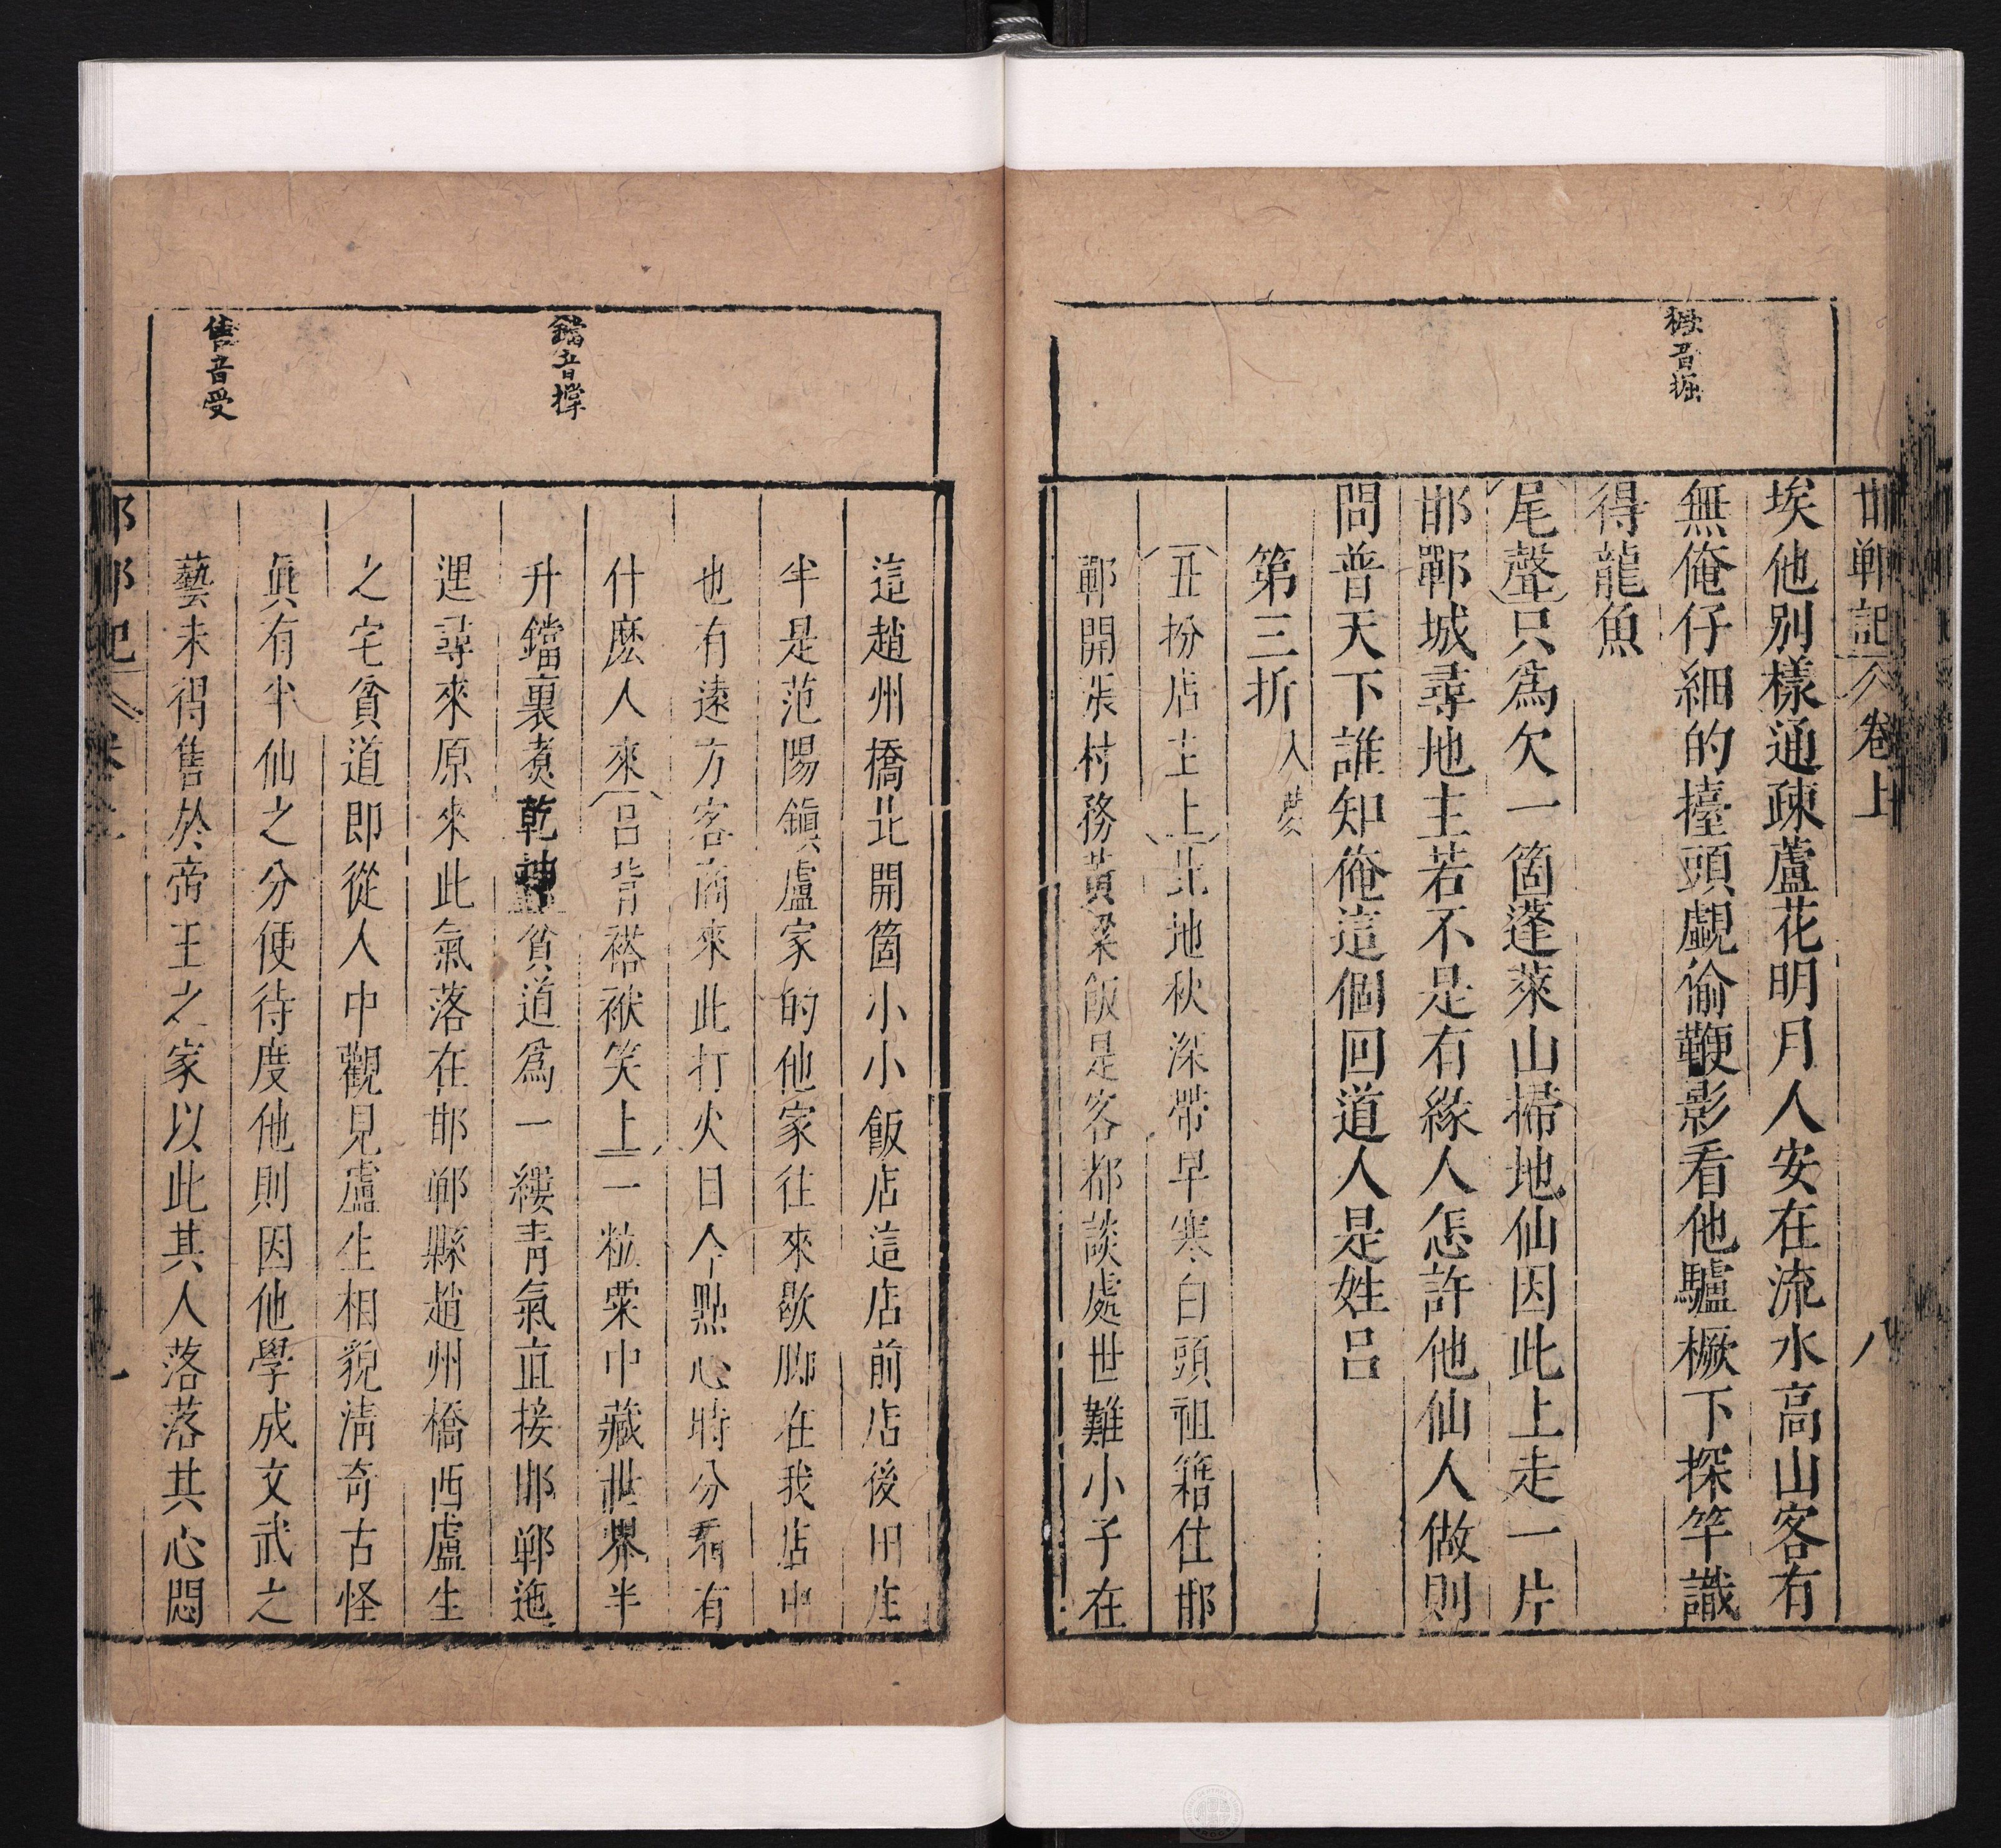 邯鄲記 卷上 八
橛音掘
埃他別樣通疎蘆花明月人安在流水高山客有
無俺仔細的擡頭覷偷鞭影看他驢橛下探竿識
得龍魚
尾聲只爲欠一箇蓬萊山掃地仙因此上走一片
邯鄲城尋地主若不是有緣人怎許他仙人做則
問普天下誰知俺這個回道人是姓呂
第三折 入夢
丑扮店主上北地秋深帶早寒白頭祖籍住邯
鄲開張村務黃粱飯是客都談處世難小子在
鐺音撑
售音受
這趙州橋北開箇小小飯店這店前店後田庄
半是范陽鎮盧家的他家往來歇脚在我店中
也有遠方客商來此打火日今點心時分看有
什麽人來呂背褡袱笑上一粒粟中藏世界半
升鐺裏煑乾坤貧道爲一縷青氣直接邯鄲迤
逞尋來原來此氣落在邯鄲縣趙州橋西盧生
之宅貧道即從人中觀見盧生相貌清奇古怪
眞有半仙之分便待度他則因他學成文武之
藝未得售於帝王之家以此其人落落其心悶
邯鄲記